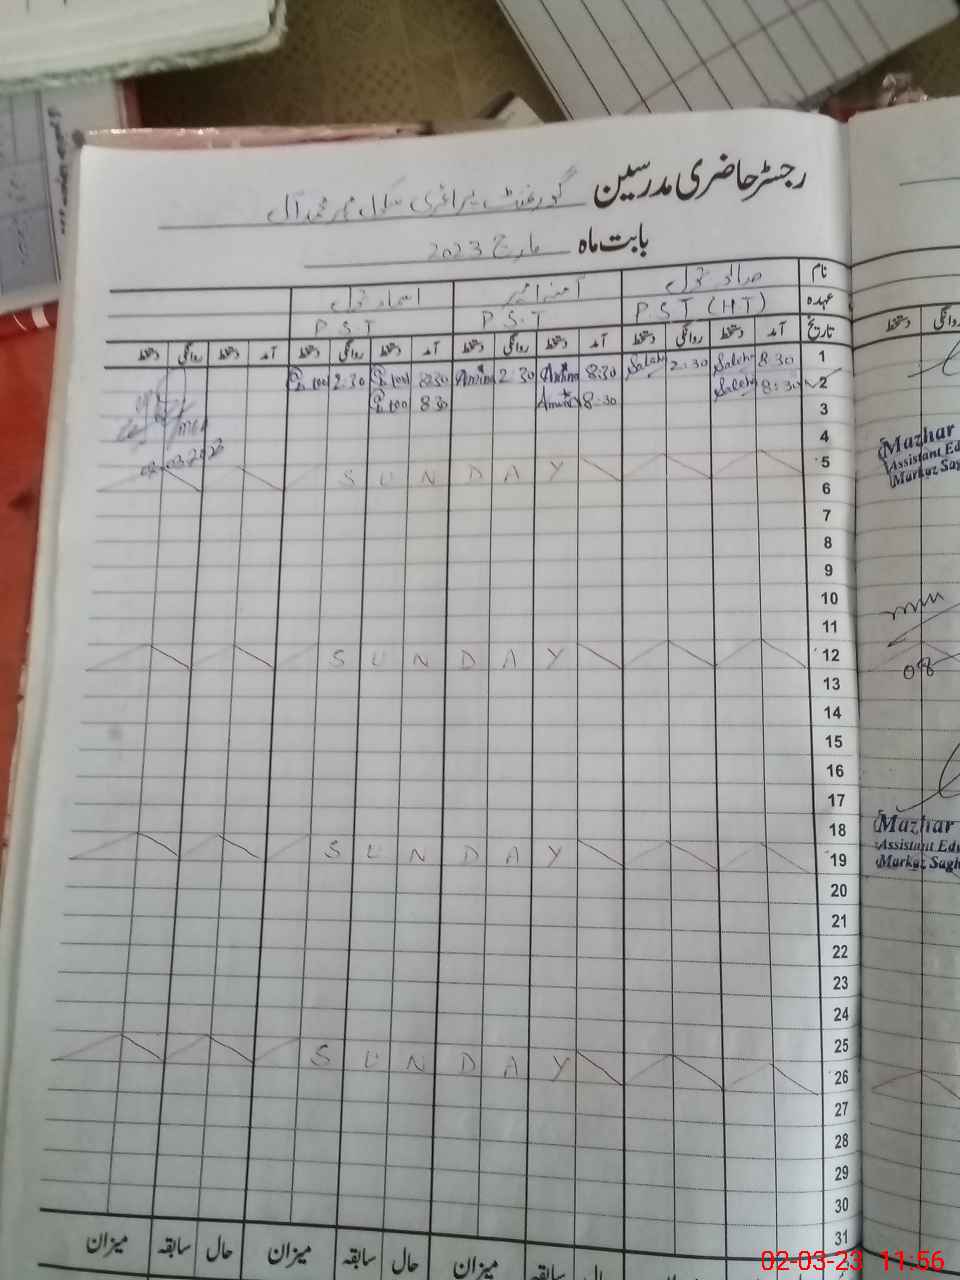 رجسٹر حاضری مدرسین گورنمنٹ پرائمری سکول
بابت ماہ مارچ 2023
نام
عہدہ P.S.T (HT) P.S.T P.S.T
تاریخ آمد دستخط روانگی دستخط آمد دستخط روانگی دستخط آمد دستخط روانگی دستخط آمد دستخط روانگی دستخط
1 8:30 Saleh 2:30 Saleh 8:30 Amina 2:30 Amina 8:30 2:30
2 8:30 Saleh 8:30 Amina 8:30
3
4
5 SUNDAY
02.03.2023
6
7
8
9
10
11
12 SUNDAY
13
14
15
16
17
18
19 SUNDAY
20
21
22
23
24
25
26 SUNDAY
27
28
29
30
31
میزان سابقہ حال میزان سابقہ حال میزان سابقہ حال
دستخط روانگی
Mazhar
Assistant Edu
Markaz Sagh
08
Mazhar
Assistant Edu
Markaz Sagh
02-03-23 11:56